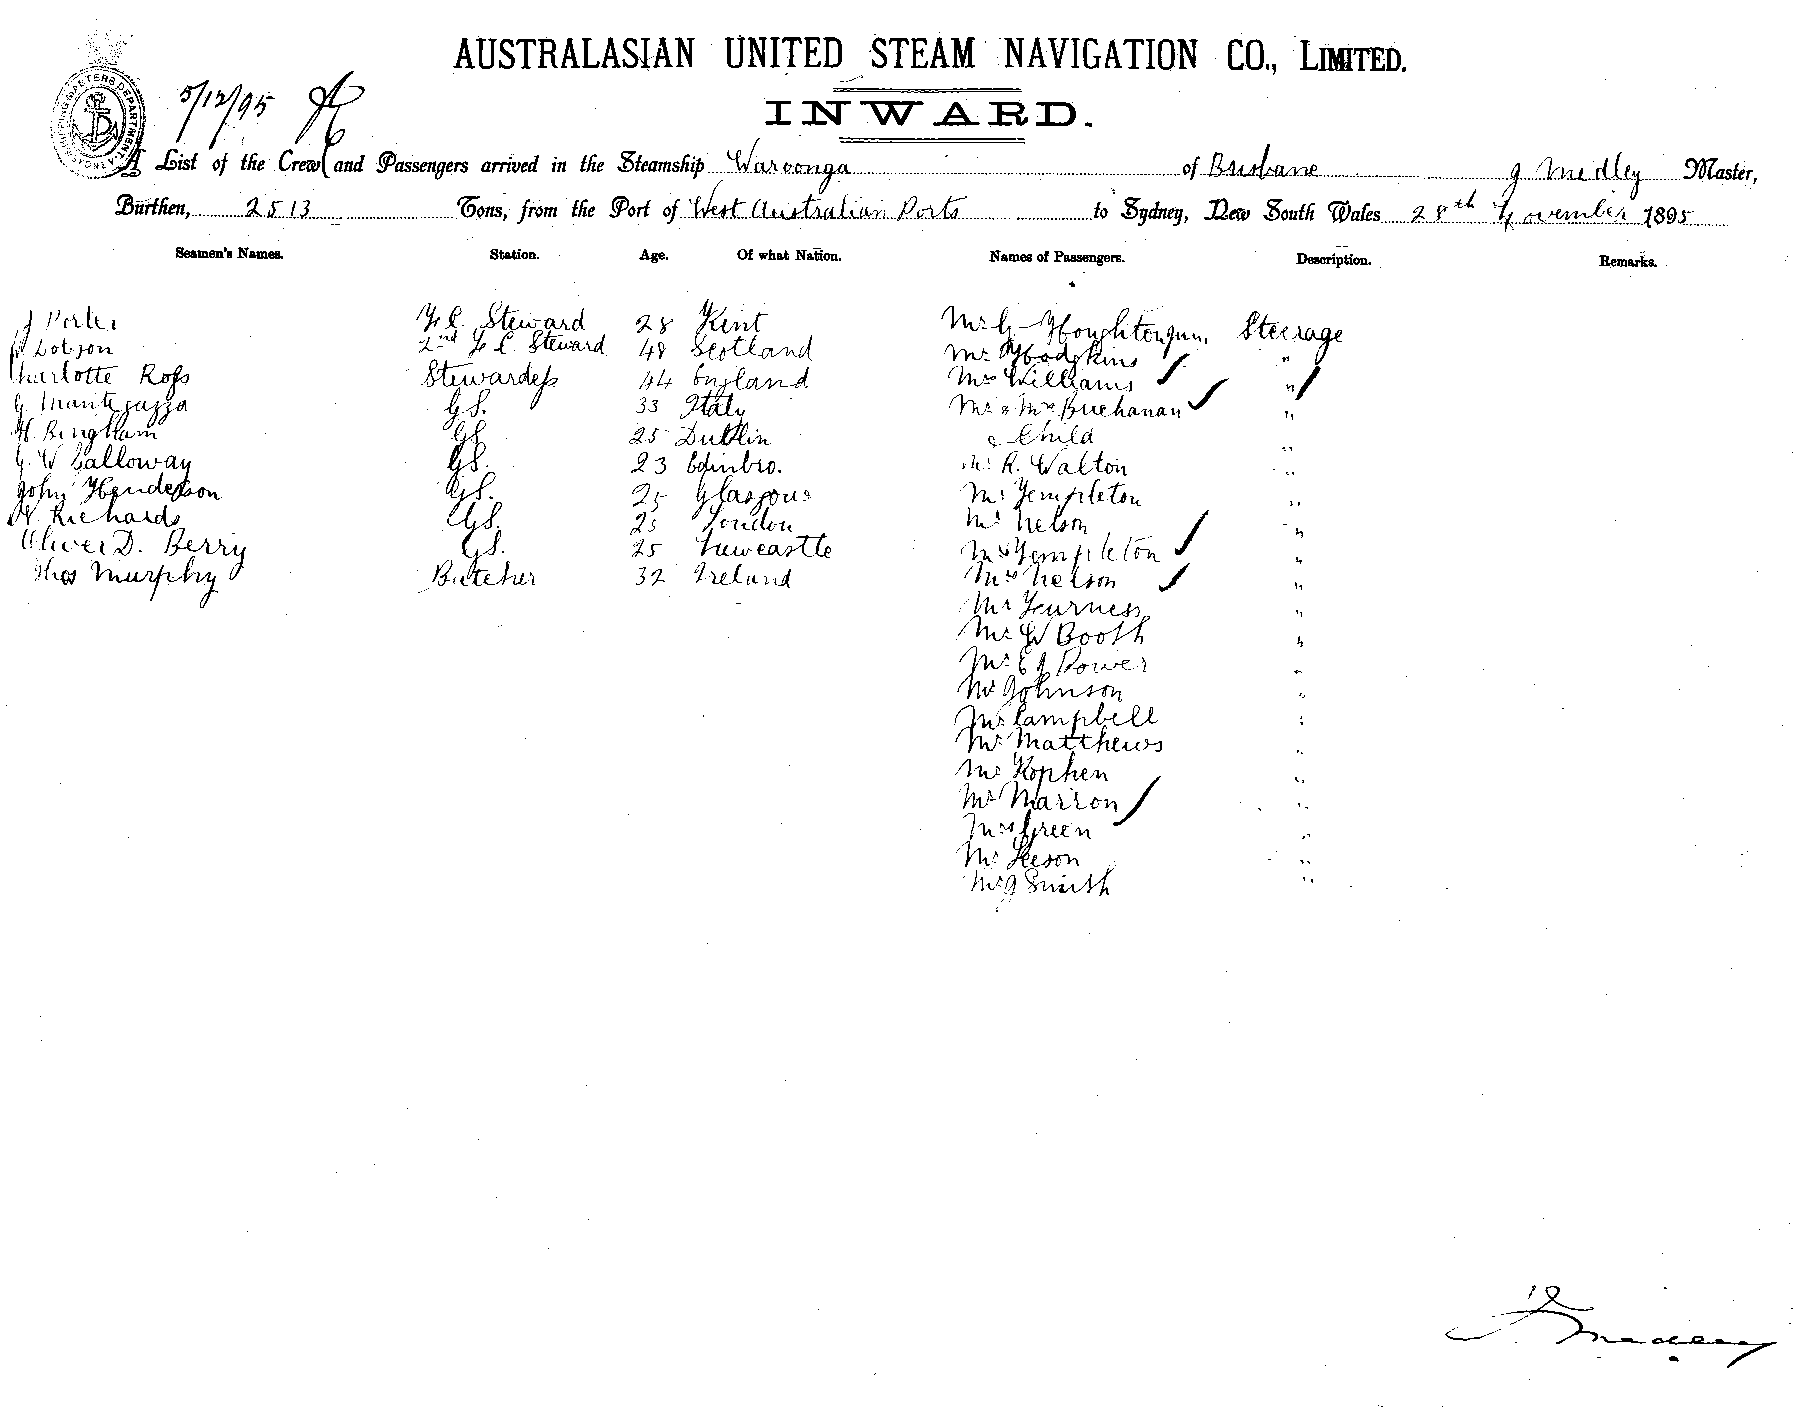 AUSTRALASIAN UNITED STEAM NAVIGATION CO., LIMITED.
INWARD.
5/12/95
A List of the Crew and Passengers arrived in the Steamship Warroonga of Brisbane J Medley Master,
Burthen, 2513 Tons, from the Port of West Australian Ports to Sydney, New South Wales 28th November 1895
Seamen's Names. Station. Age. Of what Nation. Names of Passengers. Description. Remarks.
J Porter F.C. Steward 28 Kent Mr G Houghton Jun. Steerage
Dobson 2nd F.C. Steward 48 Scotland Mr Hodgkins "
Charlotte Ross Stewardess 44 England Mrs Williams "
G Mantegazza G.S. 33 Italy Mr & Mrs Buchanan "
H. Bingham G.S. 25 Dublin & Child "
G. W Galloway G.S. 23 Edinbro. Mr R. Walton "
John Henderson G.S. 25 Glasgow Mr Templeton "
Richards G.S. 25 London Mr Nelson "
Oliver D. Berry G.S. 25 Newcastle Mrs Templeton "
Thos Murphy Butcher 32 Ireland Mrs Nelson "
Mr Furness "
Mr W Booth "
Mr E J Power "
Mr Johnson "
Mr Campbell "
Mr Matthews "
Mr Kophen "
Mr Marron "
Mrs Green "
Mr Leeson "
Mr J Smith "
J. Medley